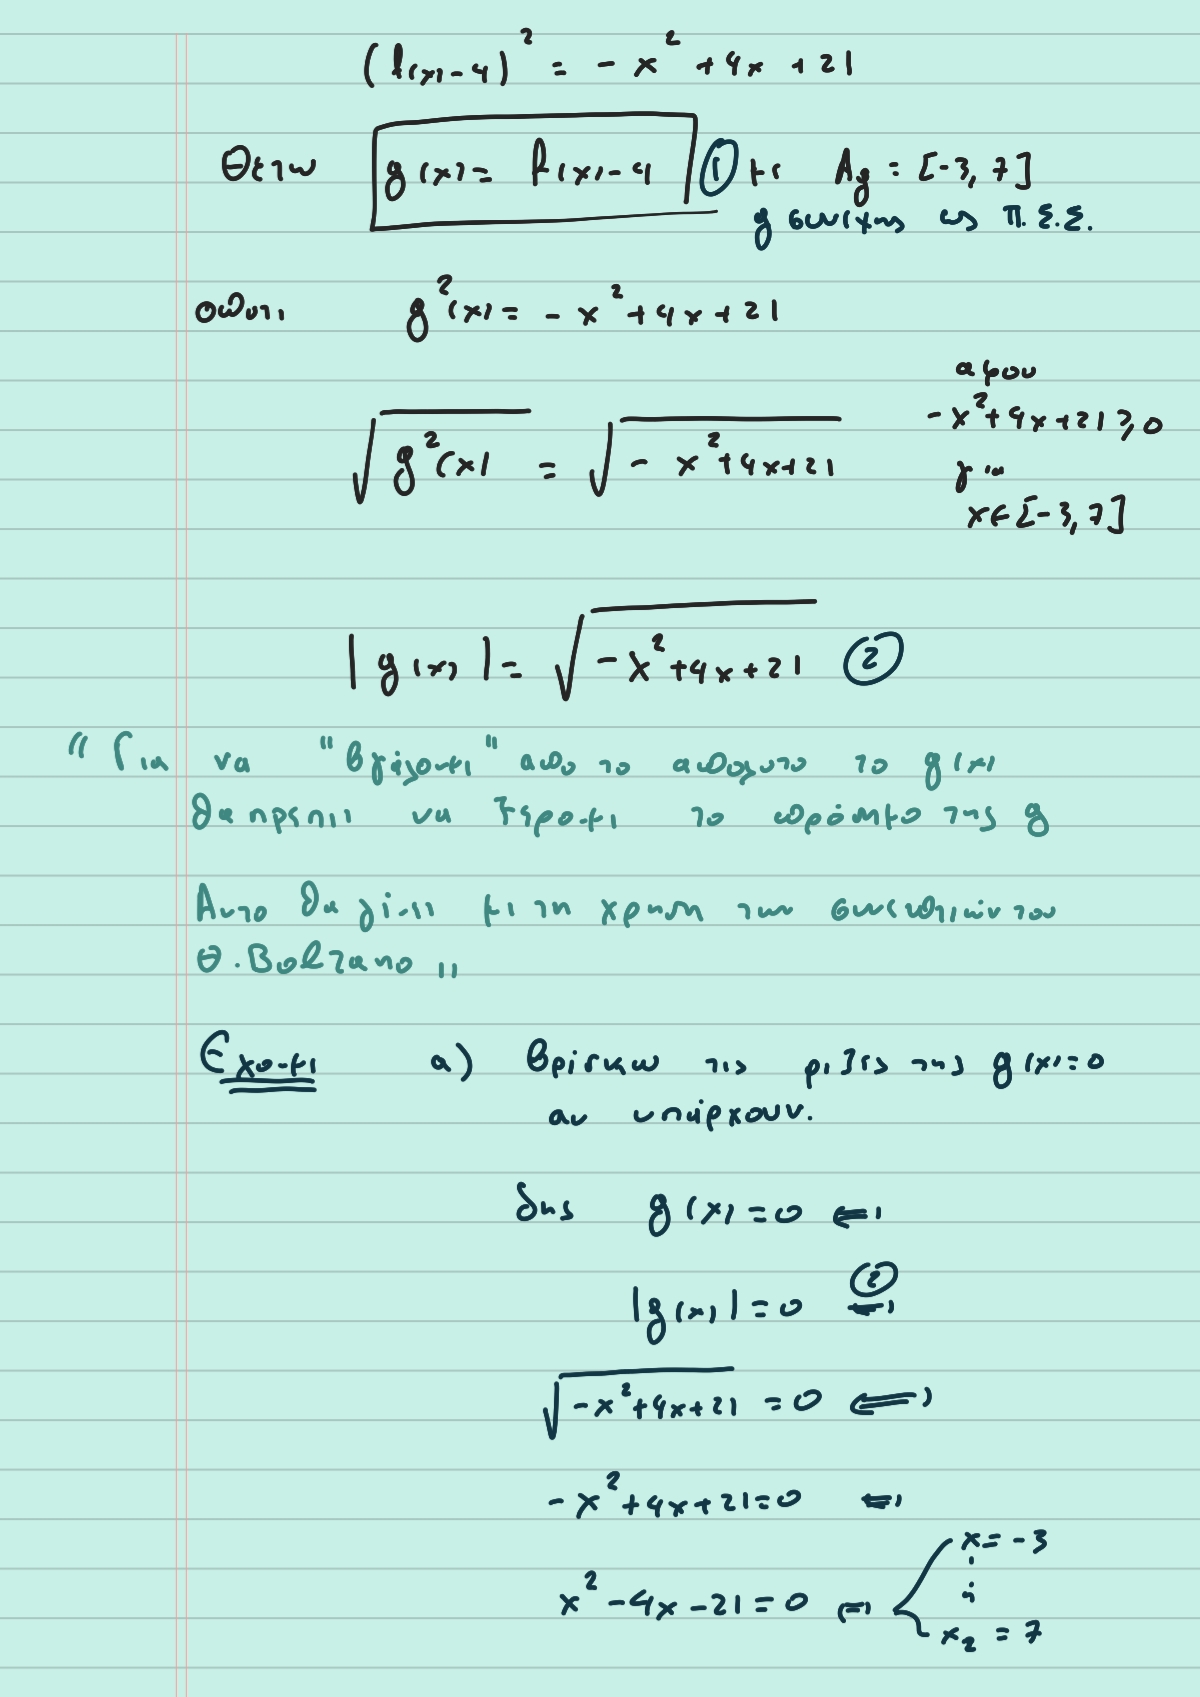 (f(x)-4)² = -x² + 4x + 21
Θετω g(x) = f(x) - 4 ① με Ag = [-3, 7]
g συνεχης ως π.σ.σ.
οποτε g²(x) = -x² + 4x + 21
αφου
-x² + 4x + 21 ≥ 0
√g²(x) = √-x² + 4x + 21
για
x ∈ [-3, 7]
|g(x)| = √-x² + 4x + 21 ②
" Για να "βγάλουμε" απο το απολυτο το g(x)
θα πρεπει να ξέρουμε το πρόσημο της g
Αυτο θα γίνει με τη χρηση των συνεπειών του
Θ. Bolzano "
Εχουμε α) βρίσκω τις ρίζες της g(x)=0
αν υπάρχουν.
δης g(x) = 0 ⇔
|g(x)| = 0 ⇔ ②
√-x² + 4x + 21 = 0 ⇔
-x² + 4x + 21 = 0 ⇔
x = -3
x² - 4x - 21 = 0 ⇔ ή
x₂ = 7